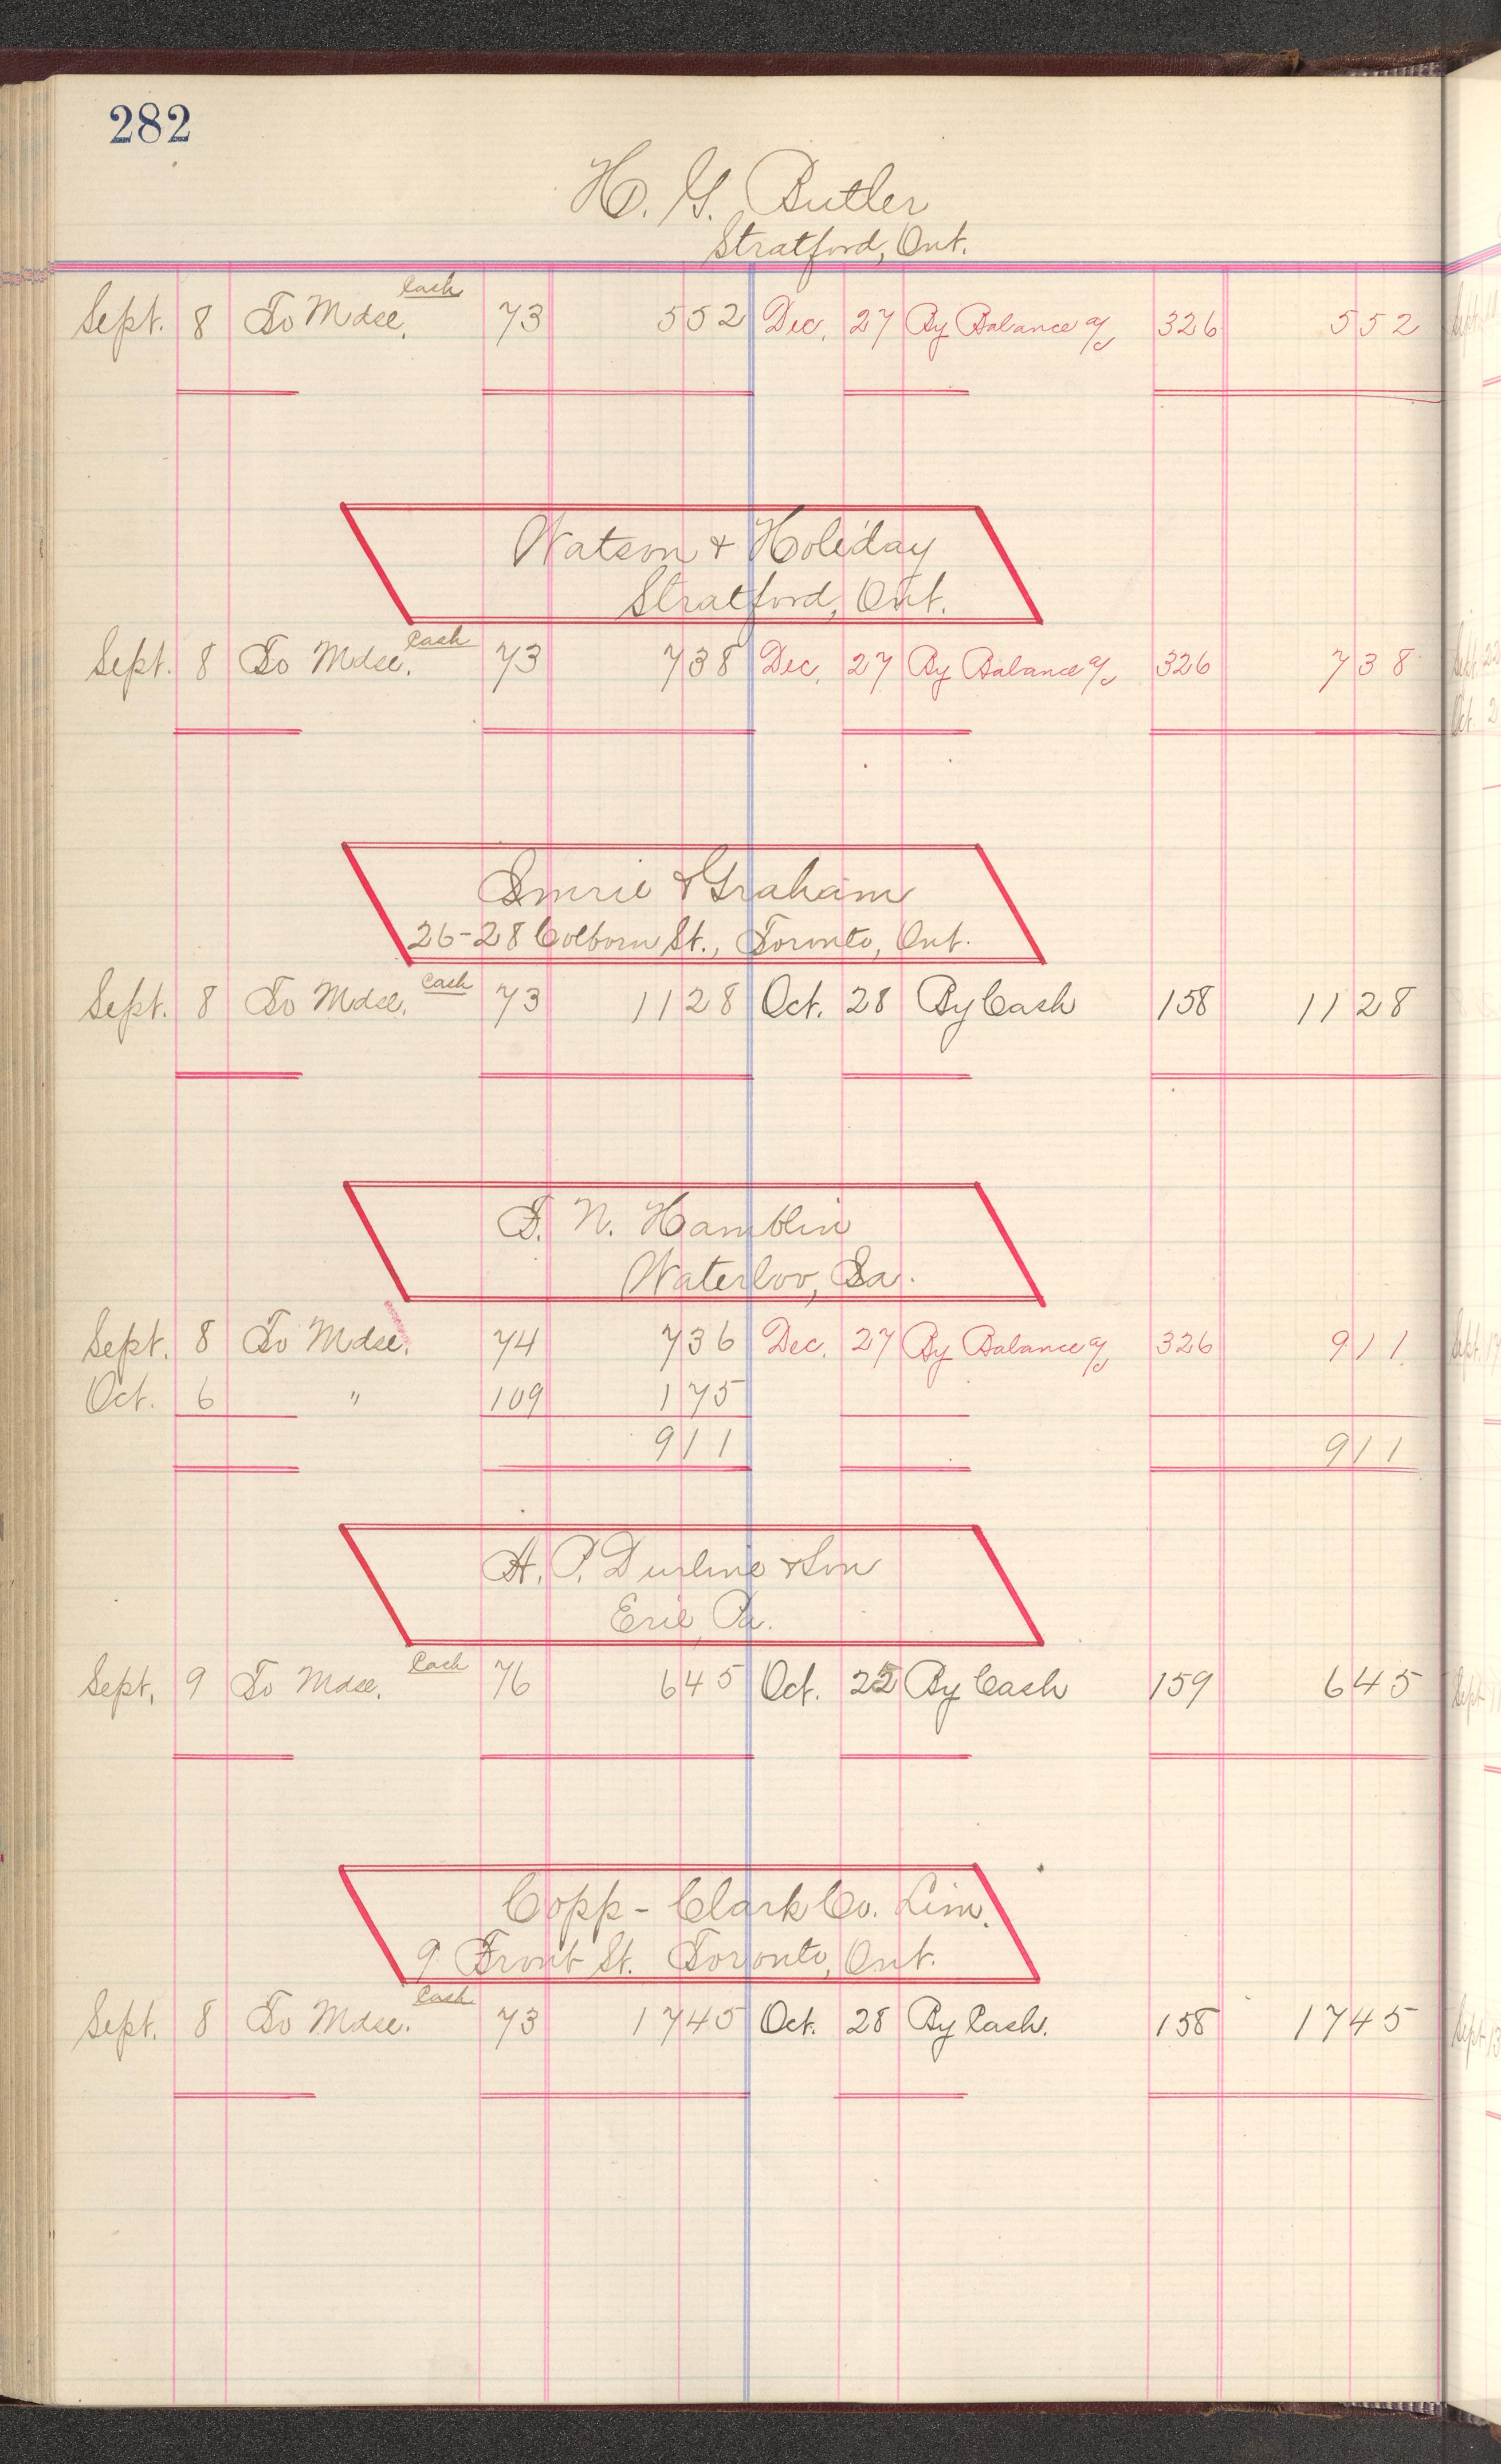 282
H. G. Butler
Stratford, Ont.
Sept. 8 To Mdse. Cash 73 5 52 Dec. 27 By Balance a/c 326 5 52
Watson & Holiday
Stratford, Ont.
Sept. 8 To Mdse. Cash 73 7 38 Dec. 27 By Balance a/c 326 7 38
Imrie & Graham
26-28 Colborn St., Toronto, Ont.
Sept. 8 To Mdse. Cash 73 11 28 Oct. 28 By Cash 158 11 28
F. N. Hamblin
Waterloo, Ia.
Sept. 8 To Mdse. 74 7 36 Dec. 27 By Balance a/c 326 9 11
Oct. 6 " 109 1 75
9 11 9 11
H. P. Durline & Son
Erie, Pa.
Sept. 9 To Mdse. Cash 76 6 45 Oct. 25 By Cash 159 6 45
Copp-Clark Co. Lim.
9 Front St. Toronto, Ont.
Sept. 8 To Mdse. Cash 73 17 45 Oct. 28 By Cash. 158 17 45